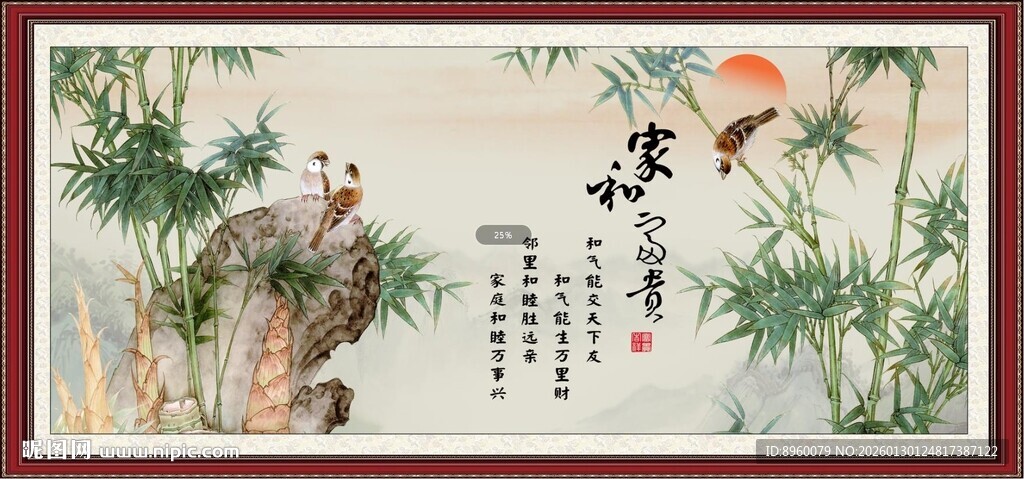 家和富贵
和气能交天下友
和气能生万里财
邻里和睦胜远亲
家庭和睦万事兴
25%
昵图网 www.nipic.com
ID:8960079 NO:20260130124817387122